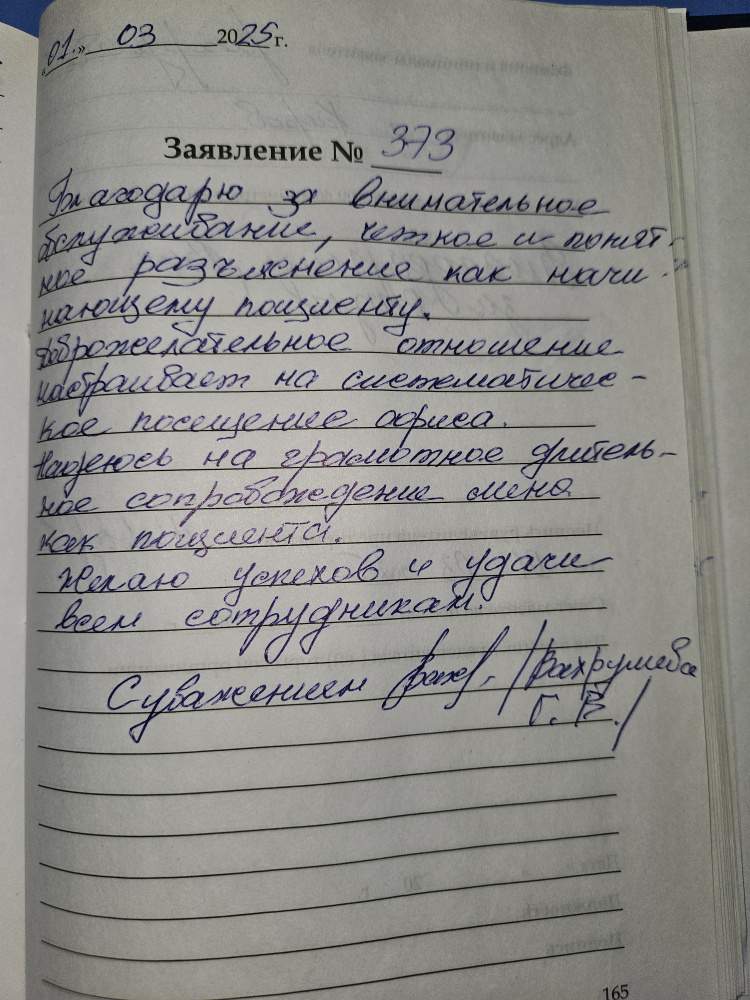 «01.» 03 2025 г.
Заявление № 373
Благодарю за внимательное
обслуживание, четкое и понят-
ное разъяснение как начи-
нающему пациенту.
Доброжелательное отношение
настраивает на систематичес-
кое посещение офиса.
Надеюсь на грамотное длитель-
ное сопровождение меня
как пациента.
Желаю успехов и удачи
всем сотрудникам.
С уважением /Вахрушева
Г. В./
165